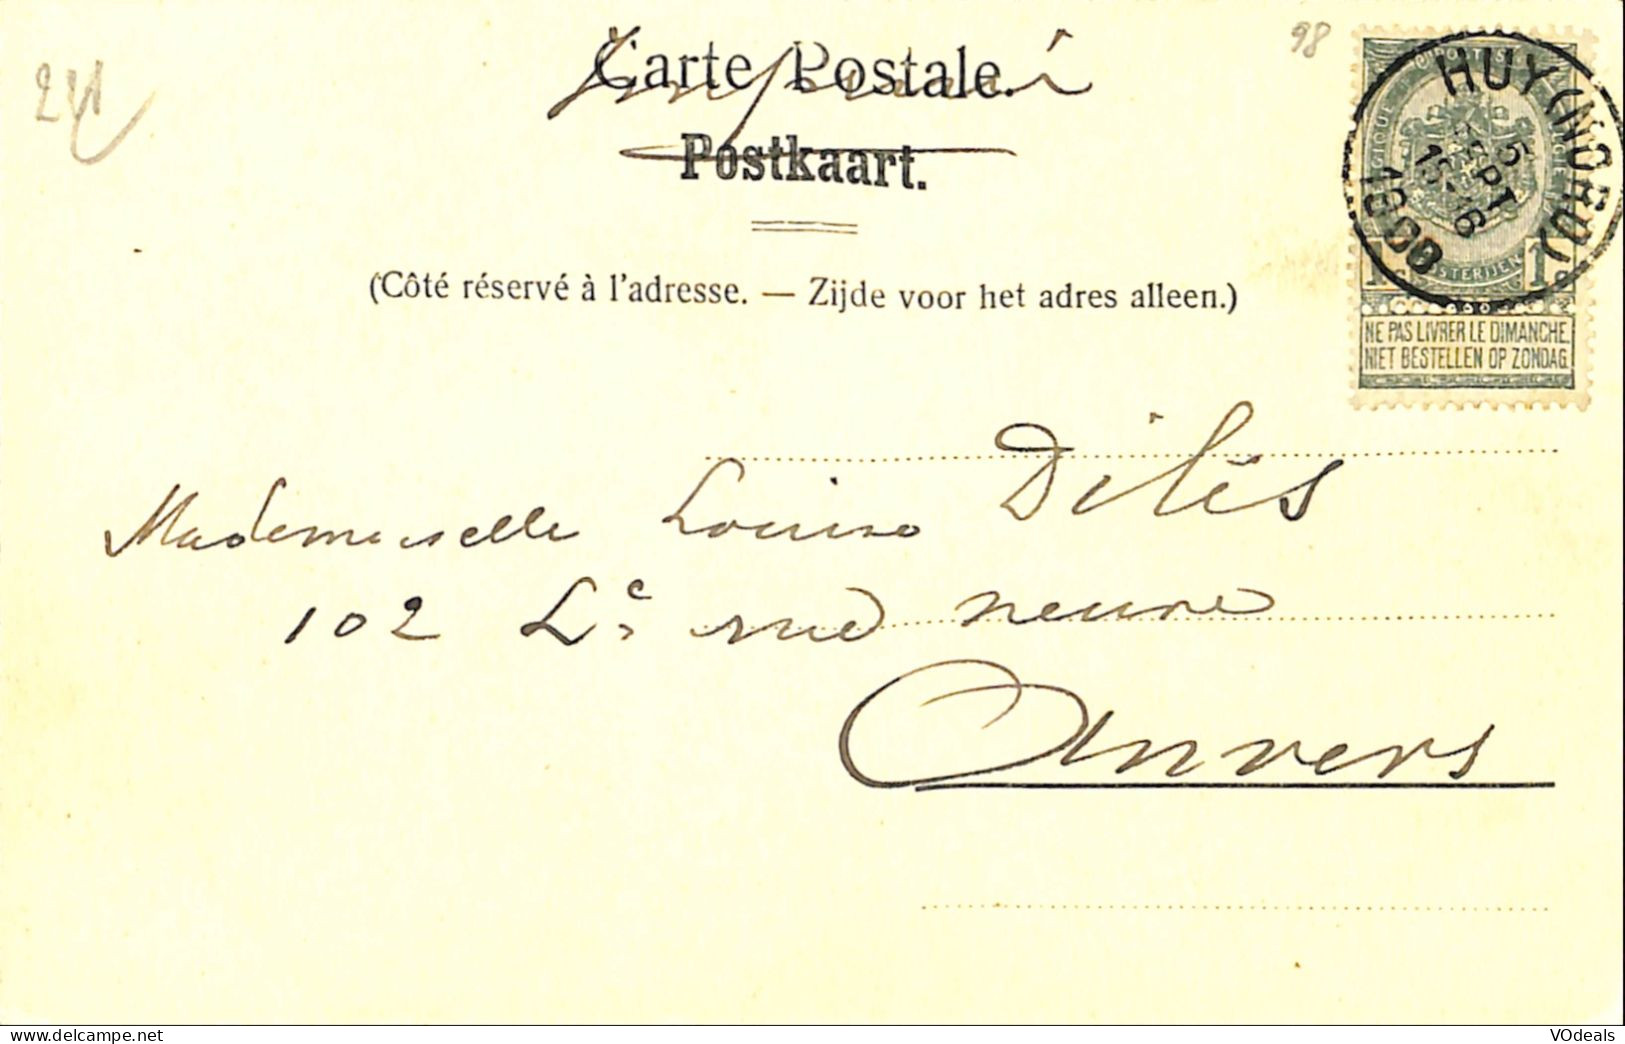 98
241
Carte Postale.
Imprimé
Postkaart.
(Côté réservé à l'adresse. — Zijde voor het adres alleen.)
HUY (NORD)
5
SEPT
1900
NE PAS LIVRER LE DIMANCHE.
NIET BESTELLEN OP ZONDAG.
Mademoiselle Louise Dilis
102 Lᵉ rue neuve
Anvers
VOdeals
http://www.delcampe.net